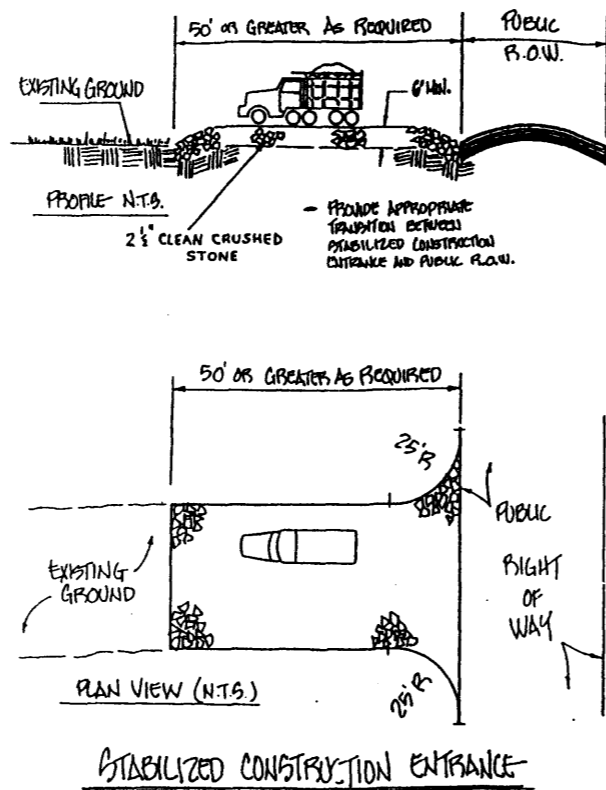 50' OR GREATER AS REQUIRED
PUBLIC
R.O.W.
EXISTING GROUND
6" MIN.
PROFILE N.T.S.
2 ½" CLEAN CRUSHED
STONE
- PROVIDE APPROPRIATE
TRANSITION BETWEEN
STABILIZED CONSTRUCTION
ENTRANCE AND PUBLIC R.O.W.
50' OR GREATER AS REQUIRED
25'R
PUBLIC
RIGHT
OF
WAY
EXISTING
GROUND
25'R
PLAN VIEW (N.T.S.)
STABILIZED CONSTRUCTION ENTRANCE